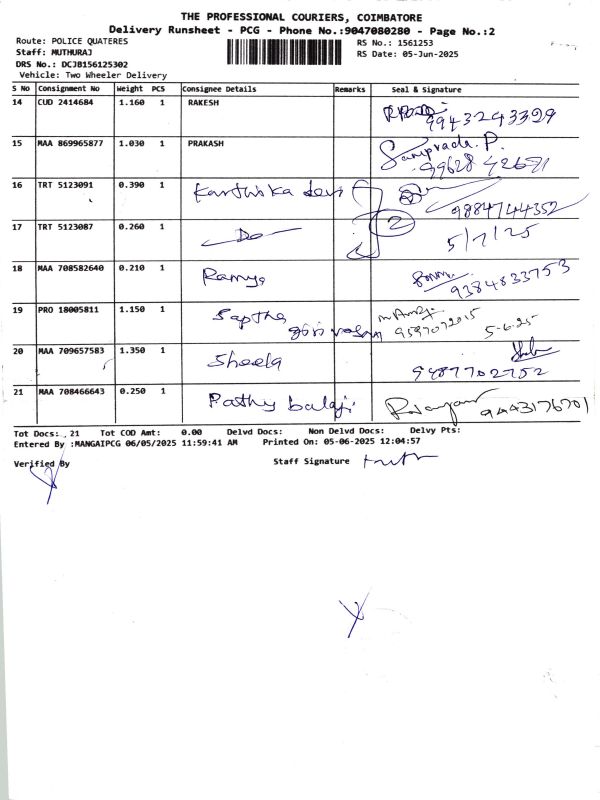 THE PROFESSIONAL COURIERS, COIMBATORE
Delivery Runsheet - PCG - Phone No.:9047080280 - Page No.:2
Route: POLICE QUATERES
RS No.: 1561253
Staff: MUTHURAJ
RS Date: 05-Jun-2025
DRS No.: DCJB156125302
Vehicle: Two Wheeler Delivery
S No Consignment No Weight PCS Consignee Details Remarks Seal & Signature
14 CUD 2414684 1.160 1 RAKESH 9943243329
15 MAA 869965877 1.030 1 PRAKASH Samprada. P.
16 TRT 5123091 0.390 1 Karthika devi 9884744352
17 TRT 5123087 0.260 1 Do 2 5/7/25
18 MAA 708582640 0.210 1 Ramya 9384833753
19 PRO 18005811 1.150 1 Saptha 9597072015 5-6-25
20 MAA 709657583 1.350 1 Sheela 9487702752
21 MAA 708466643 0.250 1 Pathy balaji 9443176701
Tot Docs: 21 Tot COD Amt: 0.00 Delvd Docs: Non Delvd Docs: Delvy Pts:
Entered By :MANGAIPCG 06/05/2025 11:59:41 AM Printed On: 05-06-2025 12:04:57
Verified By Staff Signature